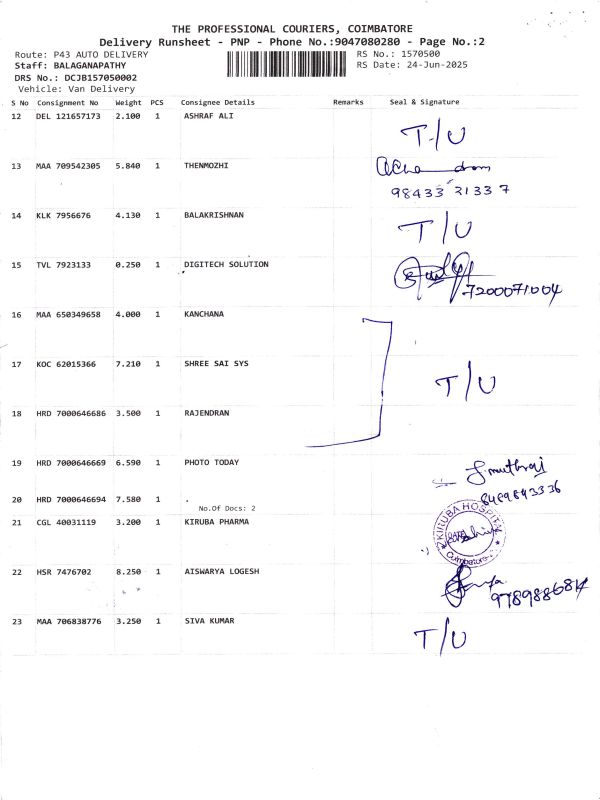 THE PROFESSIONAL COURIERS, COIMBATORE
Delivery Runsheet - PNP - Phone No.:9047080280 - Page No.:2
Route: P43 AUTO DELIVERY RS No.: 1570500
Staff: BALAGANAPATHY RS Date: 24-Jun-2025
DRS No.: DCJB157050002
Vehicle: Van Delivery
S No Consignment No Weight PCS Consignee Details Remarks Seal & Signature
12 DEL 121657173 2.100 1 ASHRAF ALI
T/U
13 MAA 709542305 5.840 1 THENMOZHI
98433 21337
14 KLK 7956676 4.130 1 BALAKRISHNAN
T/U
15 TVL 7923133 0.250 1 DIGITECH SOLUTION
7200071004
16 MAA 650349658 4.000 1 KANCHANA
17 KOC 62015366 7.210 1 SHREE SAI SYS
T/U
18 HRD 7000646686 3.500 1 RAJENDRAN
19 HRD 7000646669 6.590 1 PHOTO TODAY
20 HRD 7000646694 7.580 1 .
No.Of Docs: 2
21 CGL 40031119 3.200 1 KIRUBA PHARMA
KIRUBA HOSPITAL
Coimbatore
22 HSR 7476702 8.250 1 AISWARYA LOGESH
9789886814
23 MAA 706838776 3.250 1 SIVA KUMAR
T/U